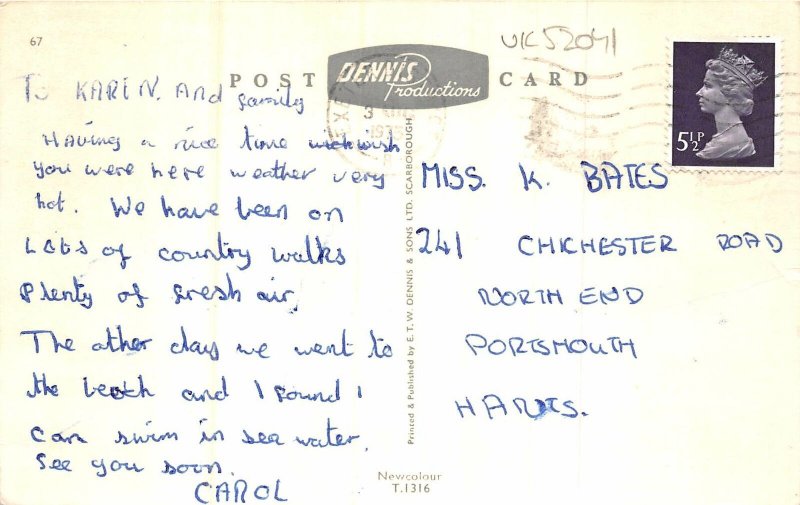 67
UK52041
POST
DENNIS
Productions
CARD
5½P
To KAREN. And family
HAVING a nice time wish
you were here weather very
hot. We have been on
Lots of country walks
Plenty of fresh air,
The other day we went to
the beach and I found I
can swim in sea water.
See you soon.
CAROL
Printed & Published by E.T.W. DENNIS & SONS LTD. SCARBOROUGH
MISS. K. BATES
241 CHICHESTER ROAD
NORTH END
PORTSMOUTH
HANTS.
Newcolour
T.1316